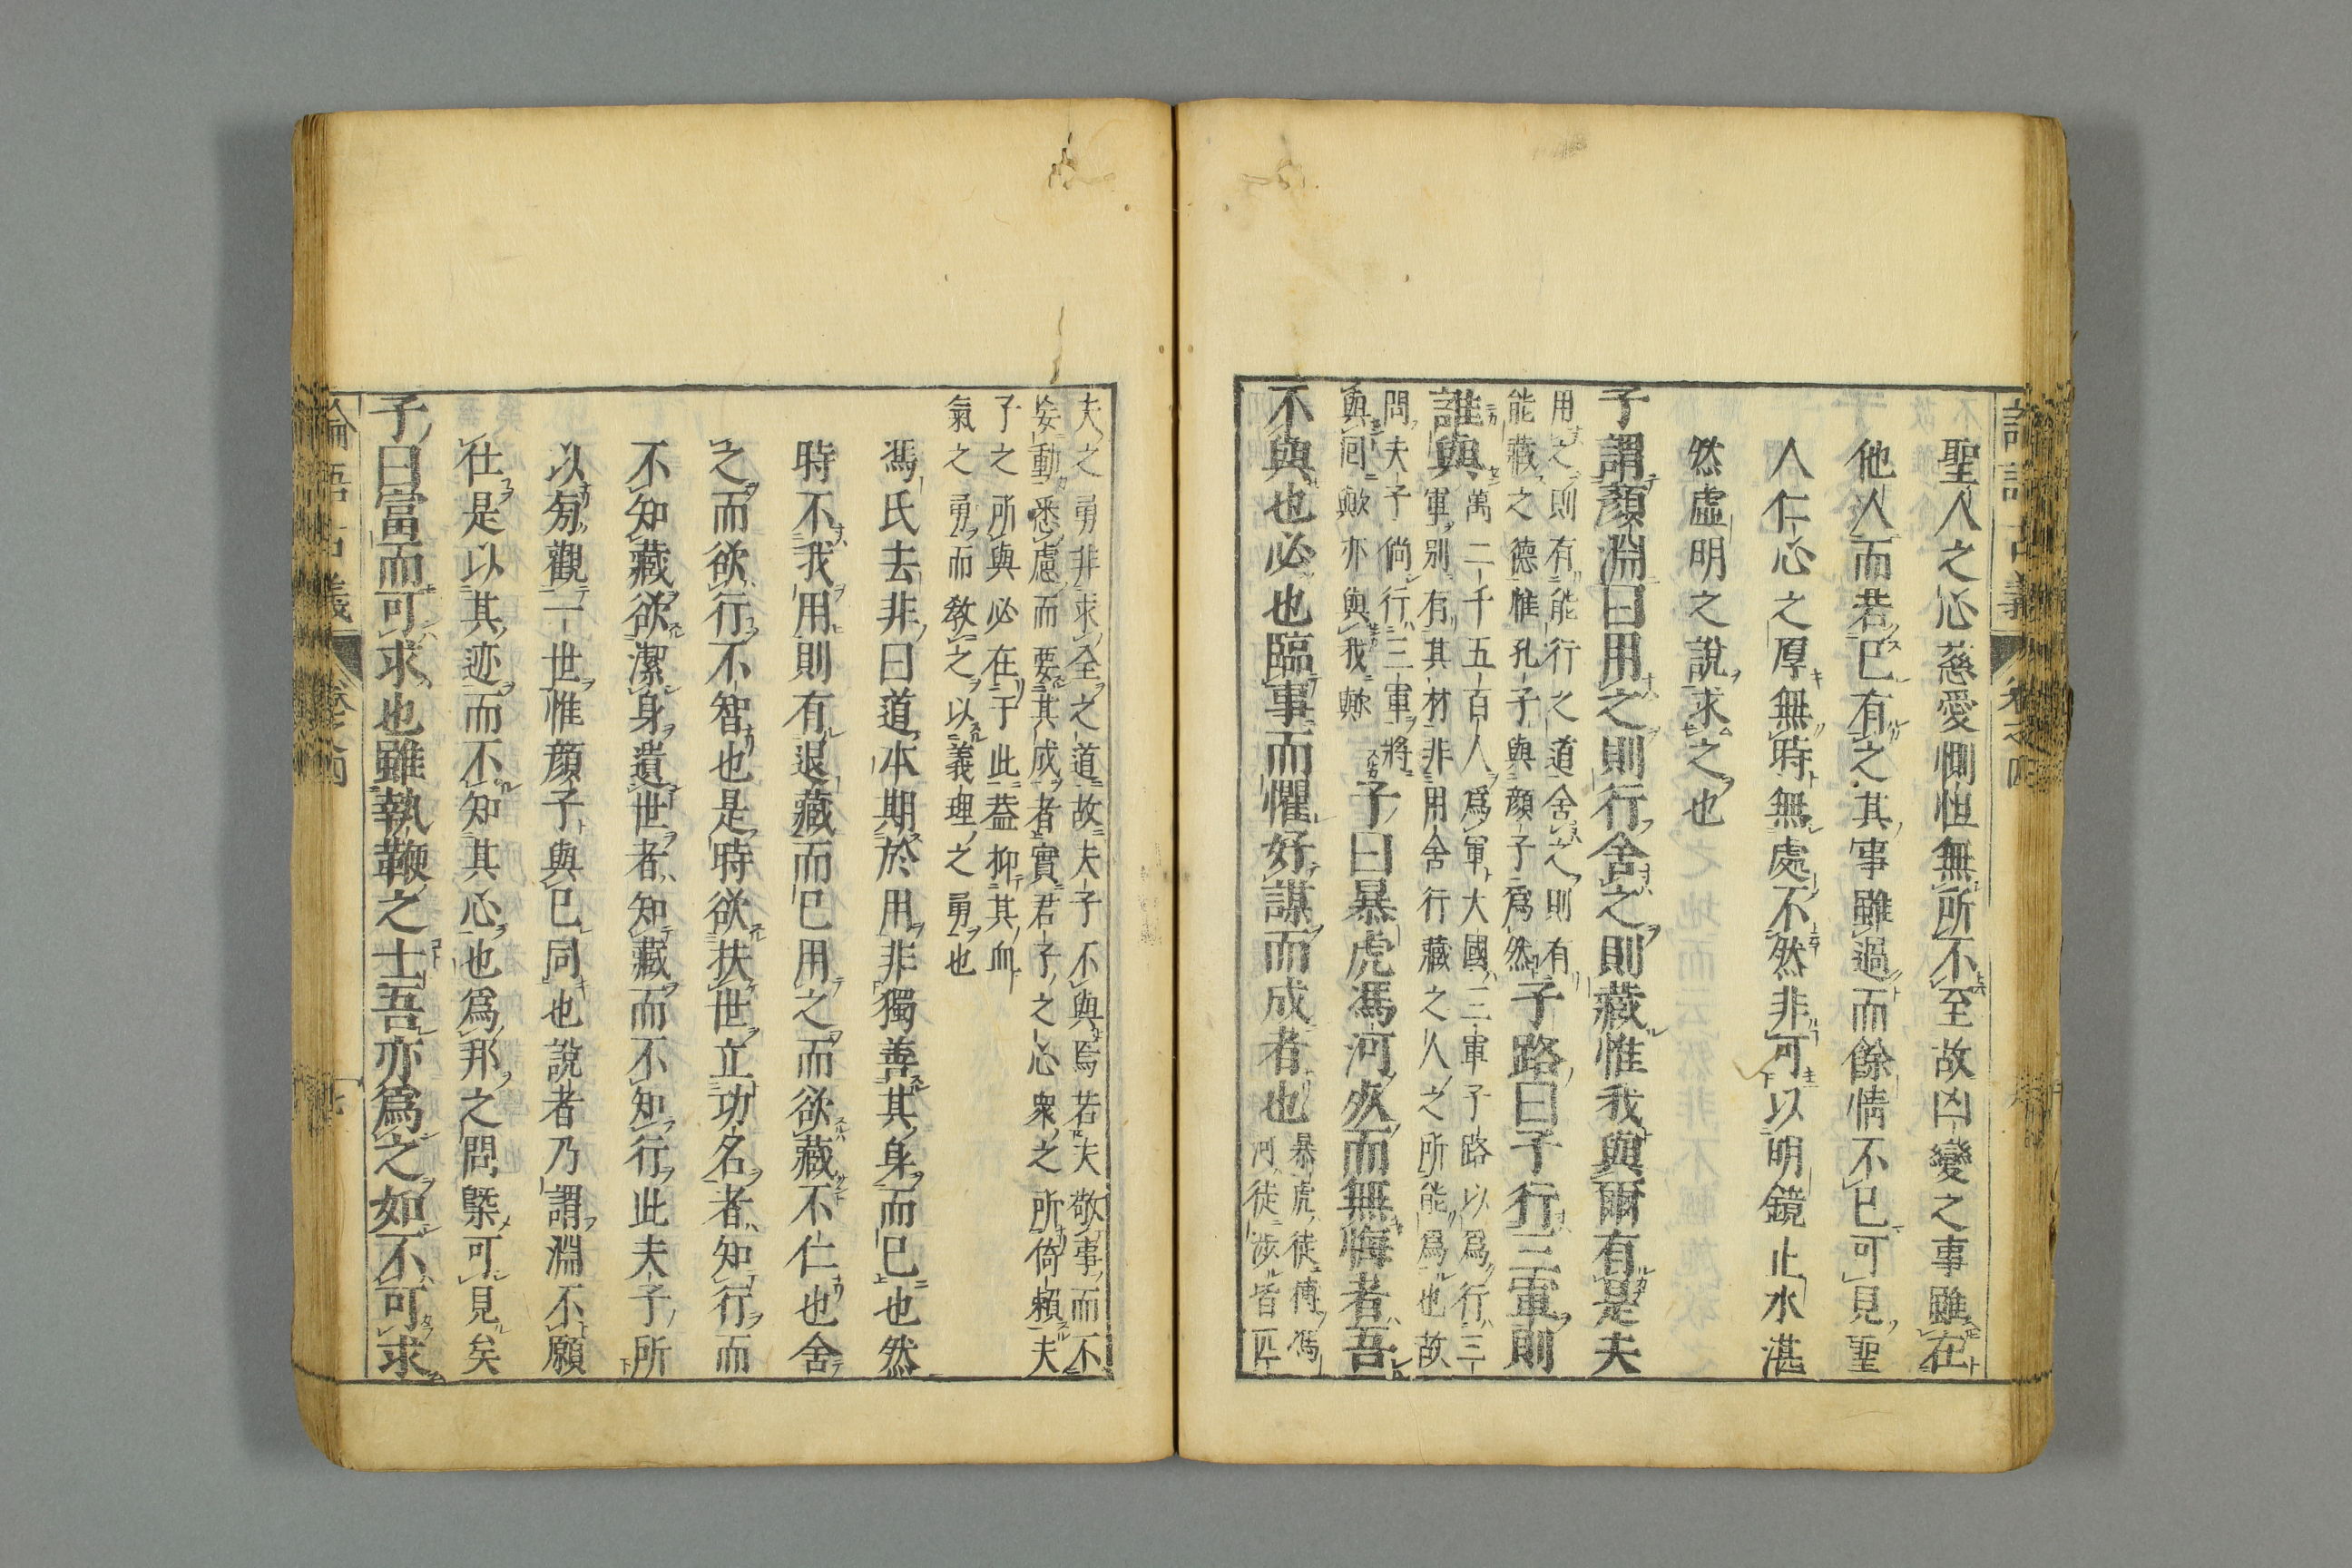 聖人之心慈愛惻怛無所不至故凶變之事雖在
他人而若己有之其事雖過而餘情不已可見聖
人仁心之厚無時無處不然非可以明鏡止水湛
然虛明之說求之也
子謂顏淵曰用之則行舍之則藏惟我與爾有是夫
用之則有能行之道舍之則有
能藏之德惟孔子與顏子爲然
子路曰子行三軍則
誰與
萬二千五百人爲軍大國三軍子路以爲行三
軍別有其材非用舍行藏之人之所能爲也故
問夫子倘行三軍將
與回歟亦與我歟
子曰暴虎馮河死而無悔者吾
不與也必也臨事而懼好謀而成者也
暴虎徒搏馮
河徒涉皆匹
夫之勇非求全之道故夫子不與焉若夫敬事而不
妄動悉慮而要其成者實君子之心衆之所倚賴夫
子之所與必在于此蓋抑其血
氣之勇而敎之以義理之勇也
馮氏去非曰道本期於用非獨善其身而已也然
時不我用則有退藏而已用之而欲藏不仁也舍
之而欲行不智也是時欲扶世立功名者知行而
不知藏欲潔身遺世者知藏而不知行此夫子所
以旁觀一世惟顏子與己同也說者乃謂淵不願
仕是以其迹而不知其心也爲邦之問槩可見矣
子曰富而可求也雖執鞭之士吾亦爲之如不可求
論語古義
卷之四
七